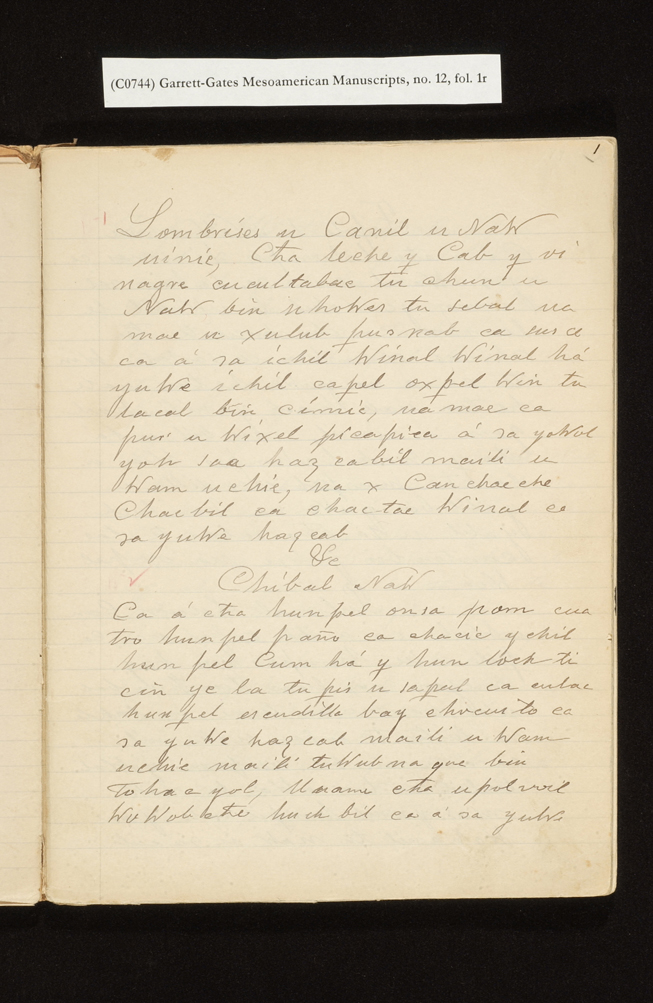 (C0744) Garrett-Gates Mesoamerican Manuscripts, no. 12, fol. 1r
1
Lombrises u Canil u Nak
uinic, Cħa leche y Cab y vi
nagre cucultabac tu chun u
Nak bin ukokes tu sebal ua
mac u xulub pusnab ca
ca á sa ichil kinal kinal há
yuke ichil capel oxpel kin tu
lacal bin cimic, ua mac ca
pus u kixel picapica á sa yokol
yok saa haɔ cabil maili u
kam uchic, ua x Canchacche
Chacbil ca chac-tac kinal ca
sa yuke haɔcab
&c
Chibal Nak
Ca á cħa hunpel onsa pom cua
tro hunpel paño ca chacic ychil
hun pel Cum há y hun loch ti
cin ye la tu pis u sapal ca
hun pel escudilla bay ca
sa yuke haɔcab maili u kam
uchic maili tukubna que bin
Tohac yol, cħa u
huchbil ca á sa yuke